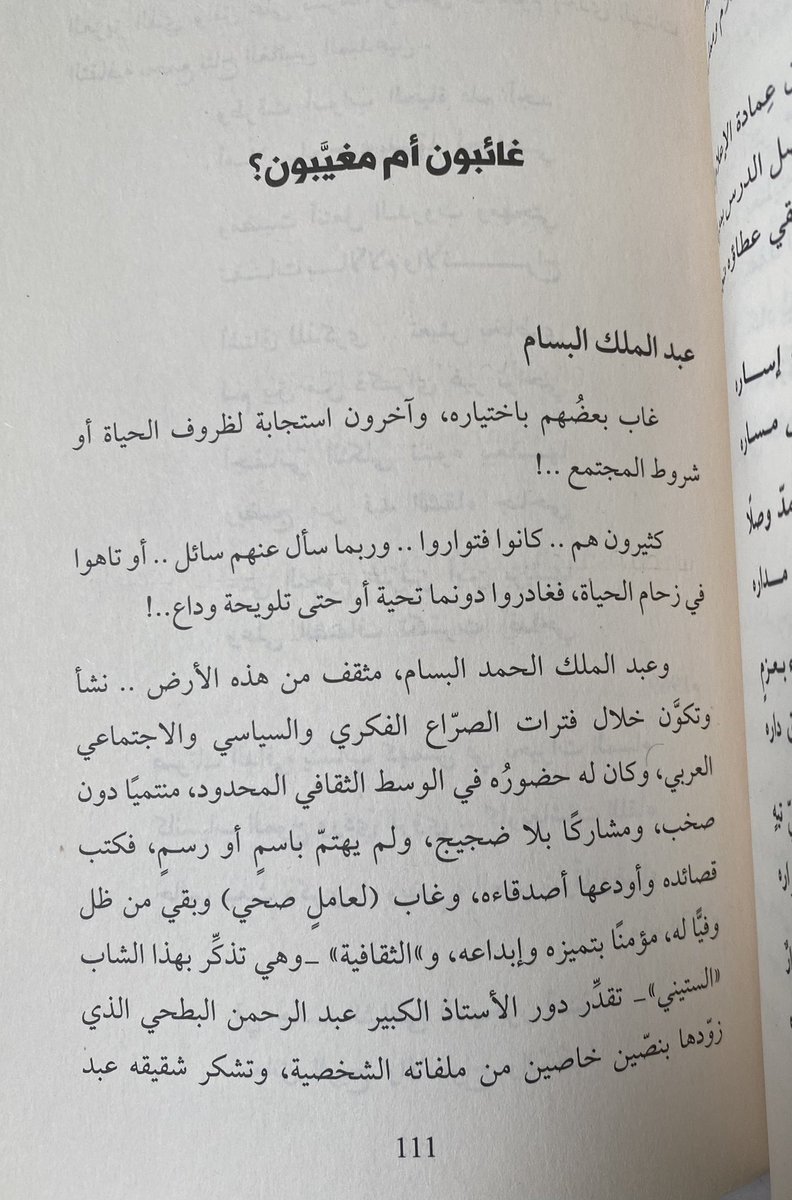 غائبون أم مغيَّبون؟
عبد الملك البسام
غاب بعضُهم باختياره، وآخرون استجابة لظروف الحياة أو
شروط المجتمع ..!
كثيرون هم .. كانوا فتواروا .. وربما سأل عنهم سائل .. أو تاهوا
في زحام الحياة، فغادروا دونما تحية أو حتى تلويحة وداع..!
وعبد الملك الحمد البسام، مثقف من هذه الأرض .. نشأ
وتكوَّن خلال فترات الصرّاع الفكري والسياسي والاجتماعي
العربي، وكان له حضورُه في الوسط الثقافي المحدود، منتميًا دون
صخب، ومشاركًا بلا ضجيج، ولم يهتمّ باسمٍ أو رسمٍ، فكتب
قصائده وأودعها أصدقاءه، وغاب (لعاملٍ صحي) وبقي من ظل
وفيًّا له، مؤمنًا بتميزه وإبداعه، و»الثقافية» _وهي تذكِّر بهذا الشاب
«الستيني»_ تقدِّر دور الأستاذ الكبير عبد الرحمن البطحي الذي
زوّدها بنصّين خاصين من ملفاته الشخصية، وتشكر شقيقه عبد
111
عِمادة
الدرس
عطاؤه
إساره
مساره
وصلًا
مداره
بعزمٍ
داره